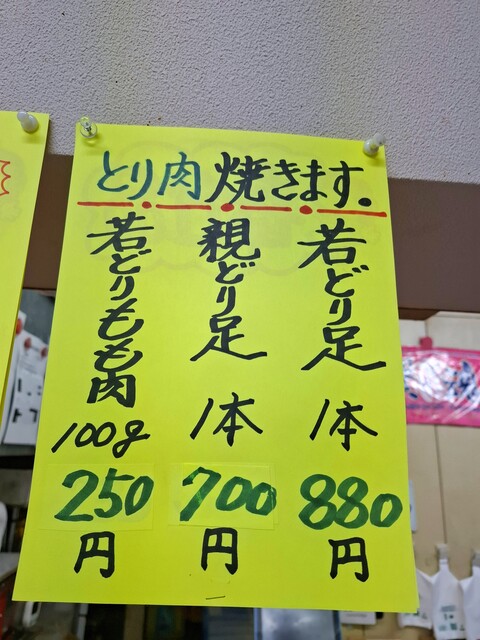 とり肉焼きます。
若どり足 1本 880円
親どり足 1本 700円
若どりもも肉 100g 250円